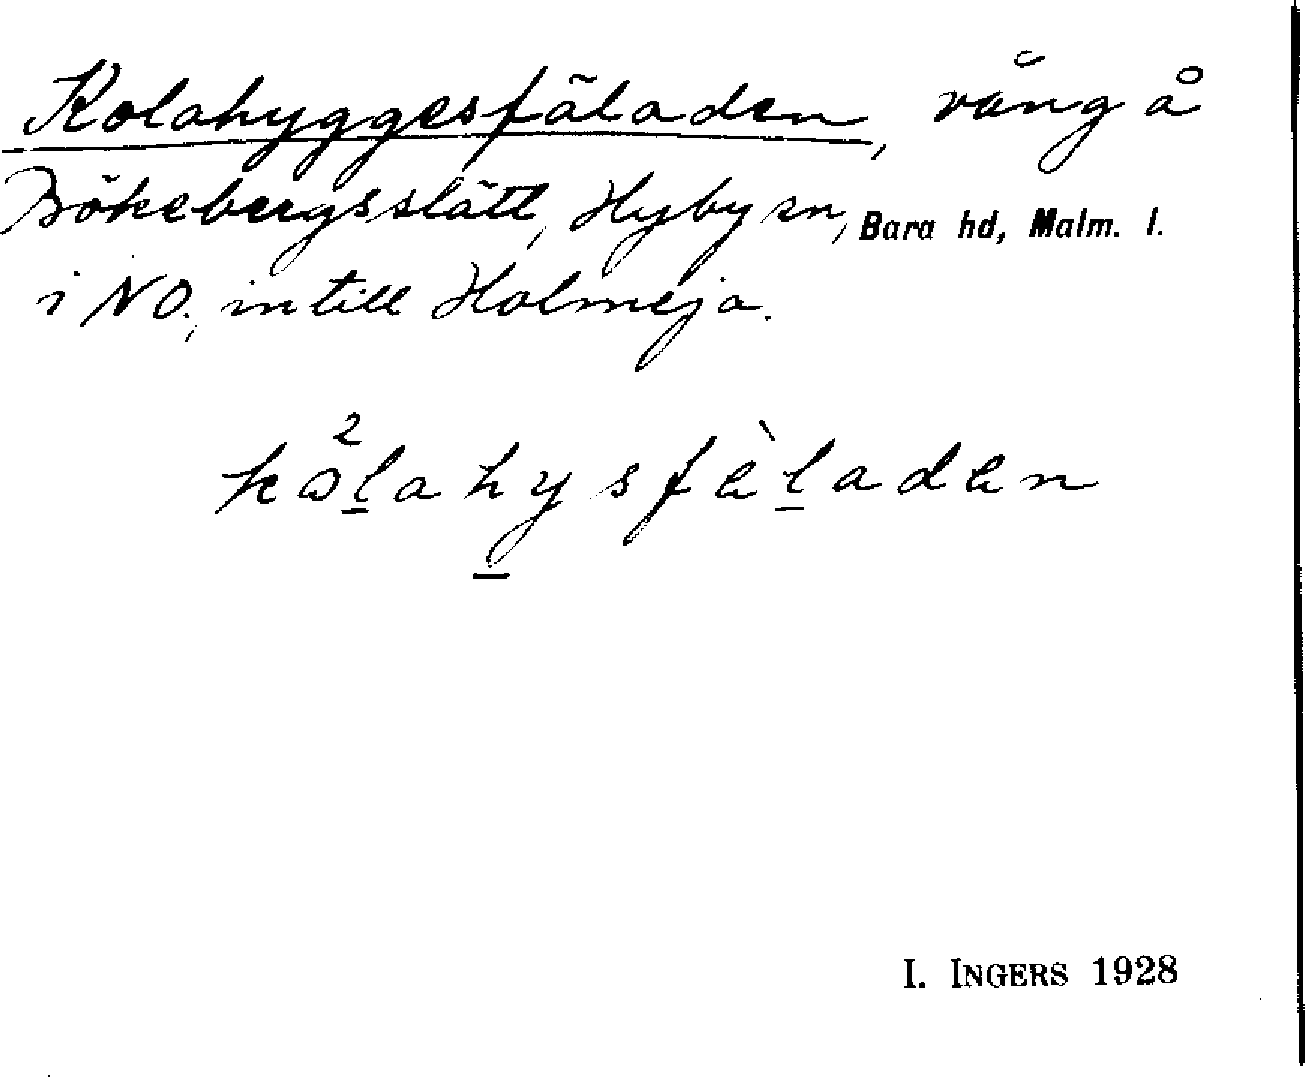 Kolahyggesfäladen, vång å
Bökebergsslätt, Hyby sn, Bara hd, Malm. l.
i NO., intill Holmeja.
kω²lahysfèladen
I. INGERS 1928